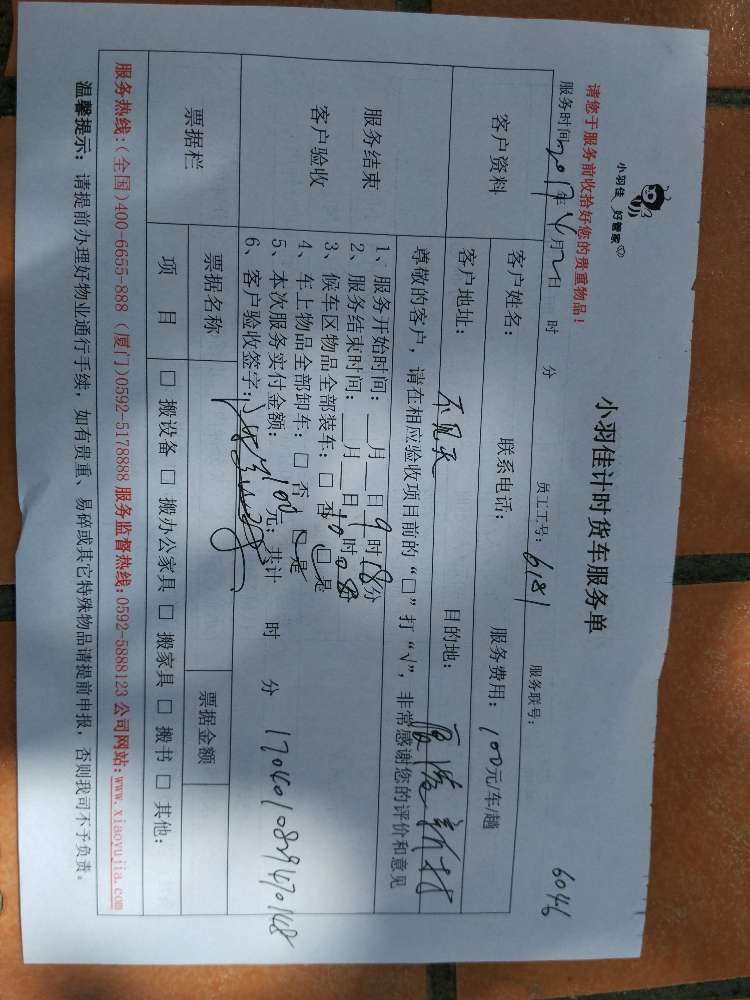 小羽佳 好管家
小羽佳计时货车服务单
6046
请您于服务前收拾好您的贵重物品!
服务时间:2017年4月2日 时 分 员工工号:6181 服务联号:
客户资料
客户姓名: 联系电话: 服务费用:100元/车/趟
客户地址: 不见天 目的地:
服务结束
客户验收
尊敬的客户,请在相应验收项目前的“□”打“√”,非常感谢您的评价和意见
1、服务开始时间:__月__日9时18分
2、服务结束时间:__月__日10时08分
3、候车区物品全部装车:□ 否 □ 是
4、车上物品全部卸车:□ 否 □ 是
5、本次服务实付金额:100元;共计 时 分
6、客户验收签字:
1704010829470148
票据栏
票据名称 票据金额
项 目 □ 搬设备 □ 搬办公家具 □ 搬家具 □ 搬书 □ 其他:
服务热线:(全国)400-6655-888 (厦门)0592-5178888 服务监督热线:0592-5888123 公司网站:www.xiaoyujia.com
温馨提示:请提前办理好物业通行手续,如有贵重、易碎或其它特殊物品请提前申报,否则我司不予负责。